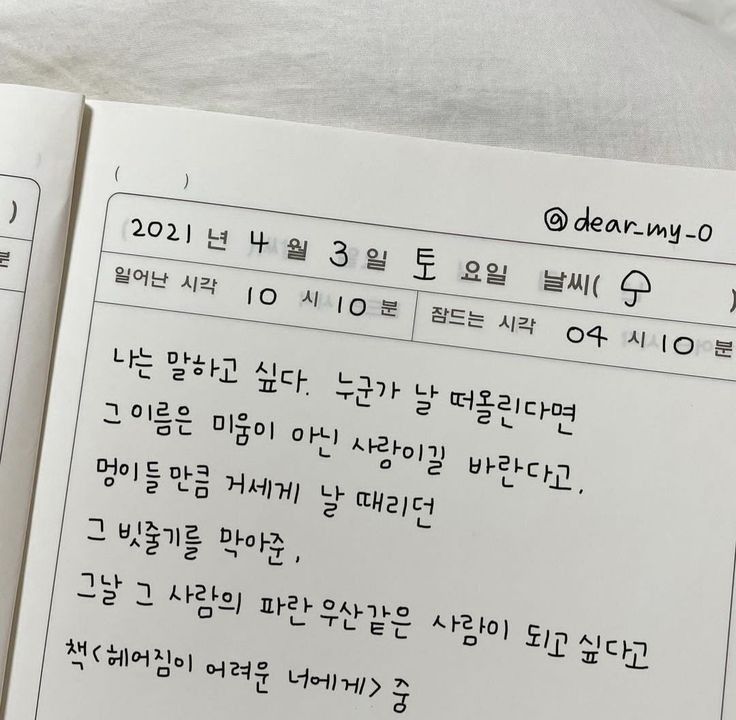 ( )
@dear_my_o
2021년 4월 3일 토요일 날씨( )
일어난 시각 10시 10분 잠드는 시각 04시 10분
나는 말하고 싶다. 누군가 날 떠올린다면
그 이름은 미움이 아닌 사랑이길 바란다고.
멍이들만큼 거세게 날 때리던
그 빗줄기를 막아준,
그날 그 사람의 파란우산같은 사람이 되고 싶다고
책<헤어짐이 어려운 너에게> 중
)
분